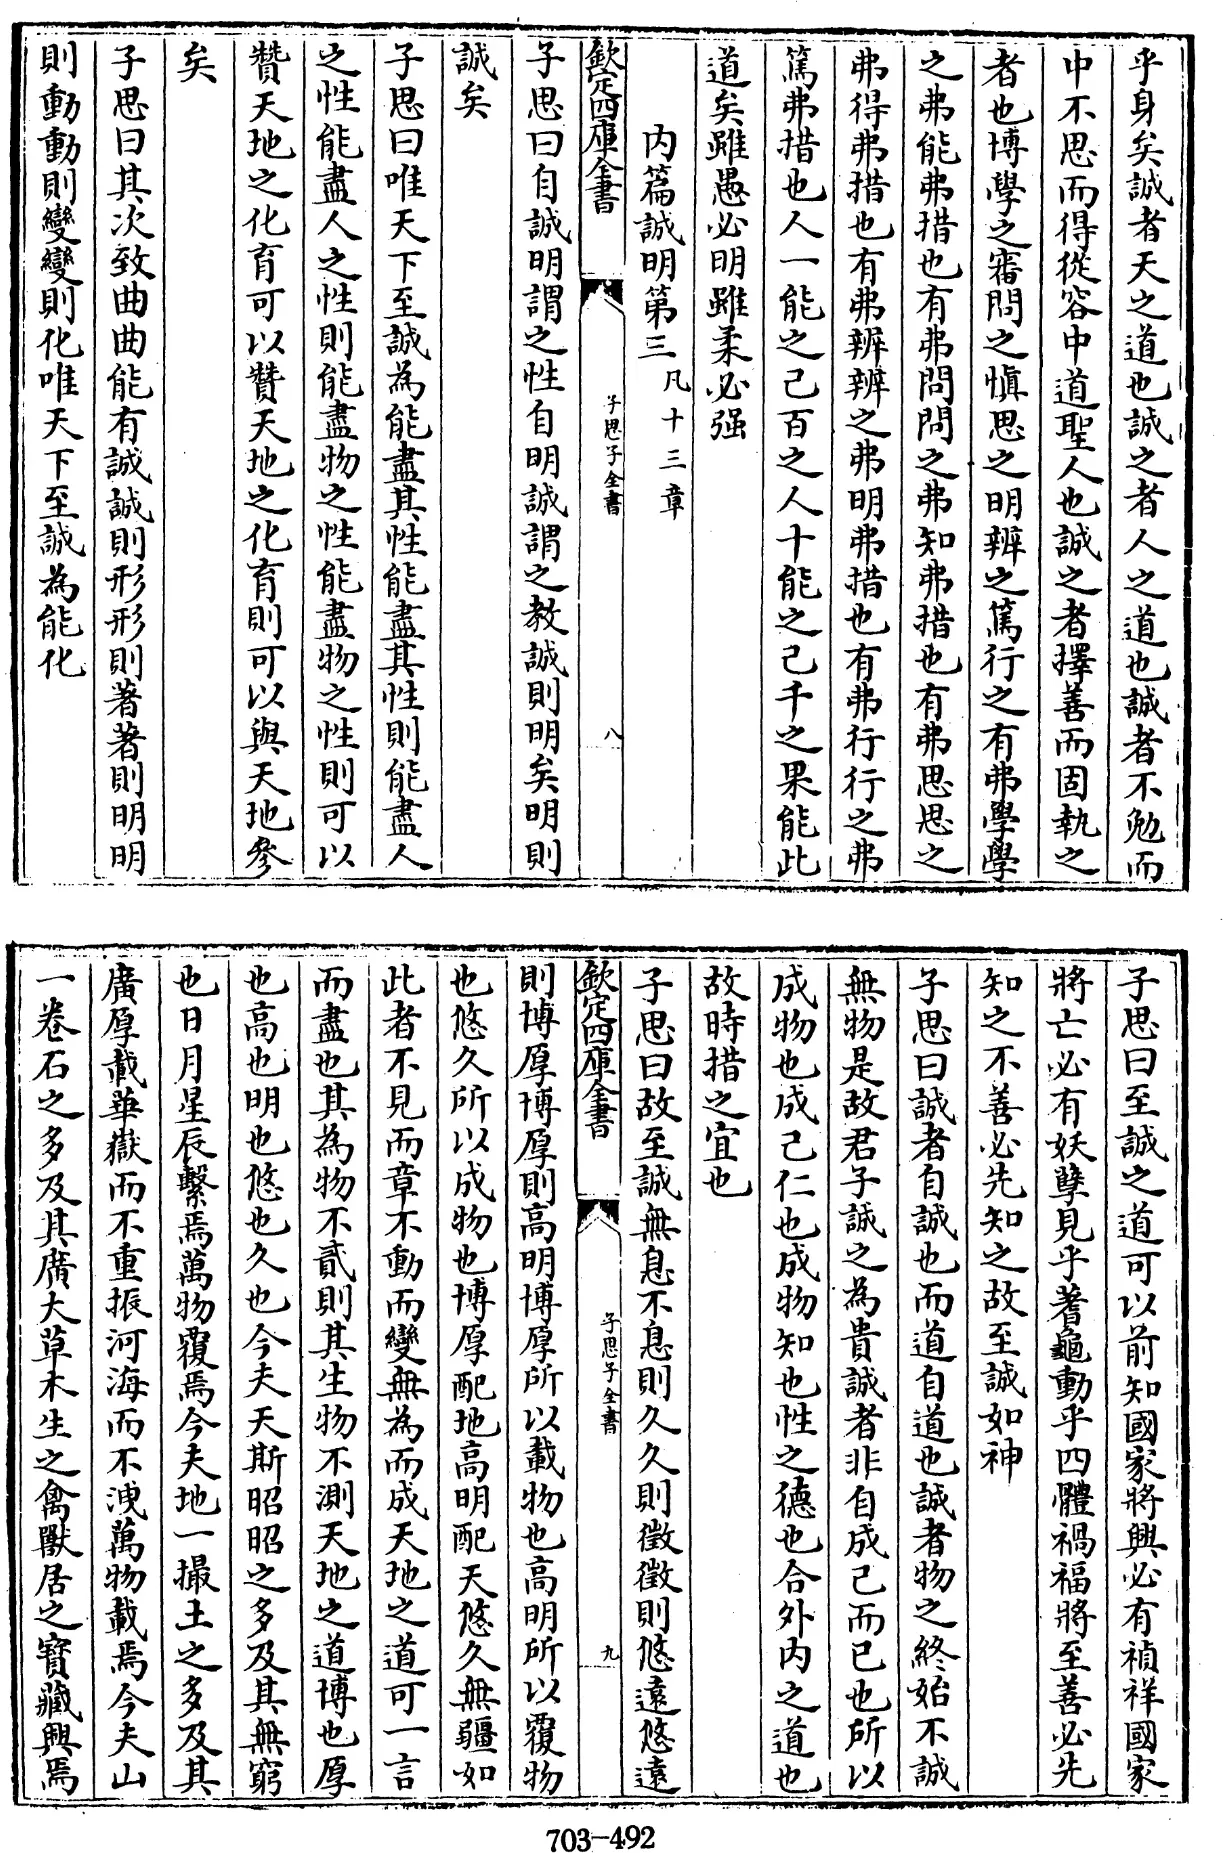 乎身矣誠者天之道也誠之者人之道也誠者不勉而
中不思而得從容中道聖人也誠之者擇善而固執之
者也博學之審問之慎思之明辨之篤行之有弗學學
之弗能弗措也有弗問問之弗知弗措也有弗思思之
弗得弗措也有弗辨辨之弗明弗措也有弗行行之弗
篤弗措也人一能之己百之人十能之己千之果能此
道矣雖愚必明雖柔必强
内篇誠明第三凡十三章
欽定四庫全書
子思子全書
八
子思曰自誠明謂之性自明誠謂之教誠則明矣明則
誠矣
子思曰唯天下至誠為能盡其性能盡其性則能盡人
之性能盡人之性則能盡物之性能盡物之性則可以
贊天地之化育可以贊天地之化育則可以與天地參
矣
子思曰其次致曲曲能有誠誠則形形則著著則明明
則動動則變變則化唯天下至誠為能化
子思曰至誠之道可以前知國家將興必有禎祥國家
將亡必有妖孽見乎蓍龜動乎四體禍福將至善必先
知之不善必先知之故至誠如神
子思曰誠者自誠也而道自道也誠者物之終始不誠
無物是故君子誠之為貴誠者非自成己而已也所以
成物也成己仁也成物知也性之德也合外内之道也
故時措之宜也
子思曰故至誠無息不息則久久則徵徵則悠遠悠遠
欽定四庫全書
子思子全書
九
則博厚博厚則高明博厚所以載物也高明所以覆物
也悠久所以成物也博厚配地高明配天悠久無疆如
此者不見而章不動而變無為而成天地之道可一言
而盡也其為物不貳則其生物不測天地之道博也厚
也高也明也悠也久也今夫天斯昭昭之多及其無窮
也日月星辰繫焉萬物覆焉今夫地一撮土之多及其
廣厚載華嶽而不重振河海而不洩萬物載焉今夫山
一卷石之多及其廣大草木生之禽獸居之寶藏興焉
703-492